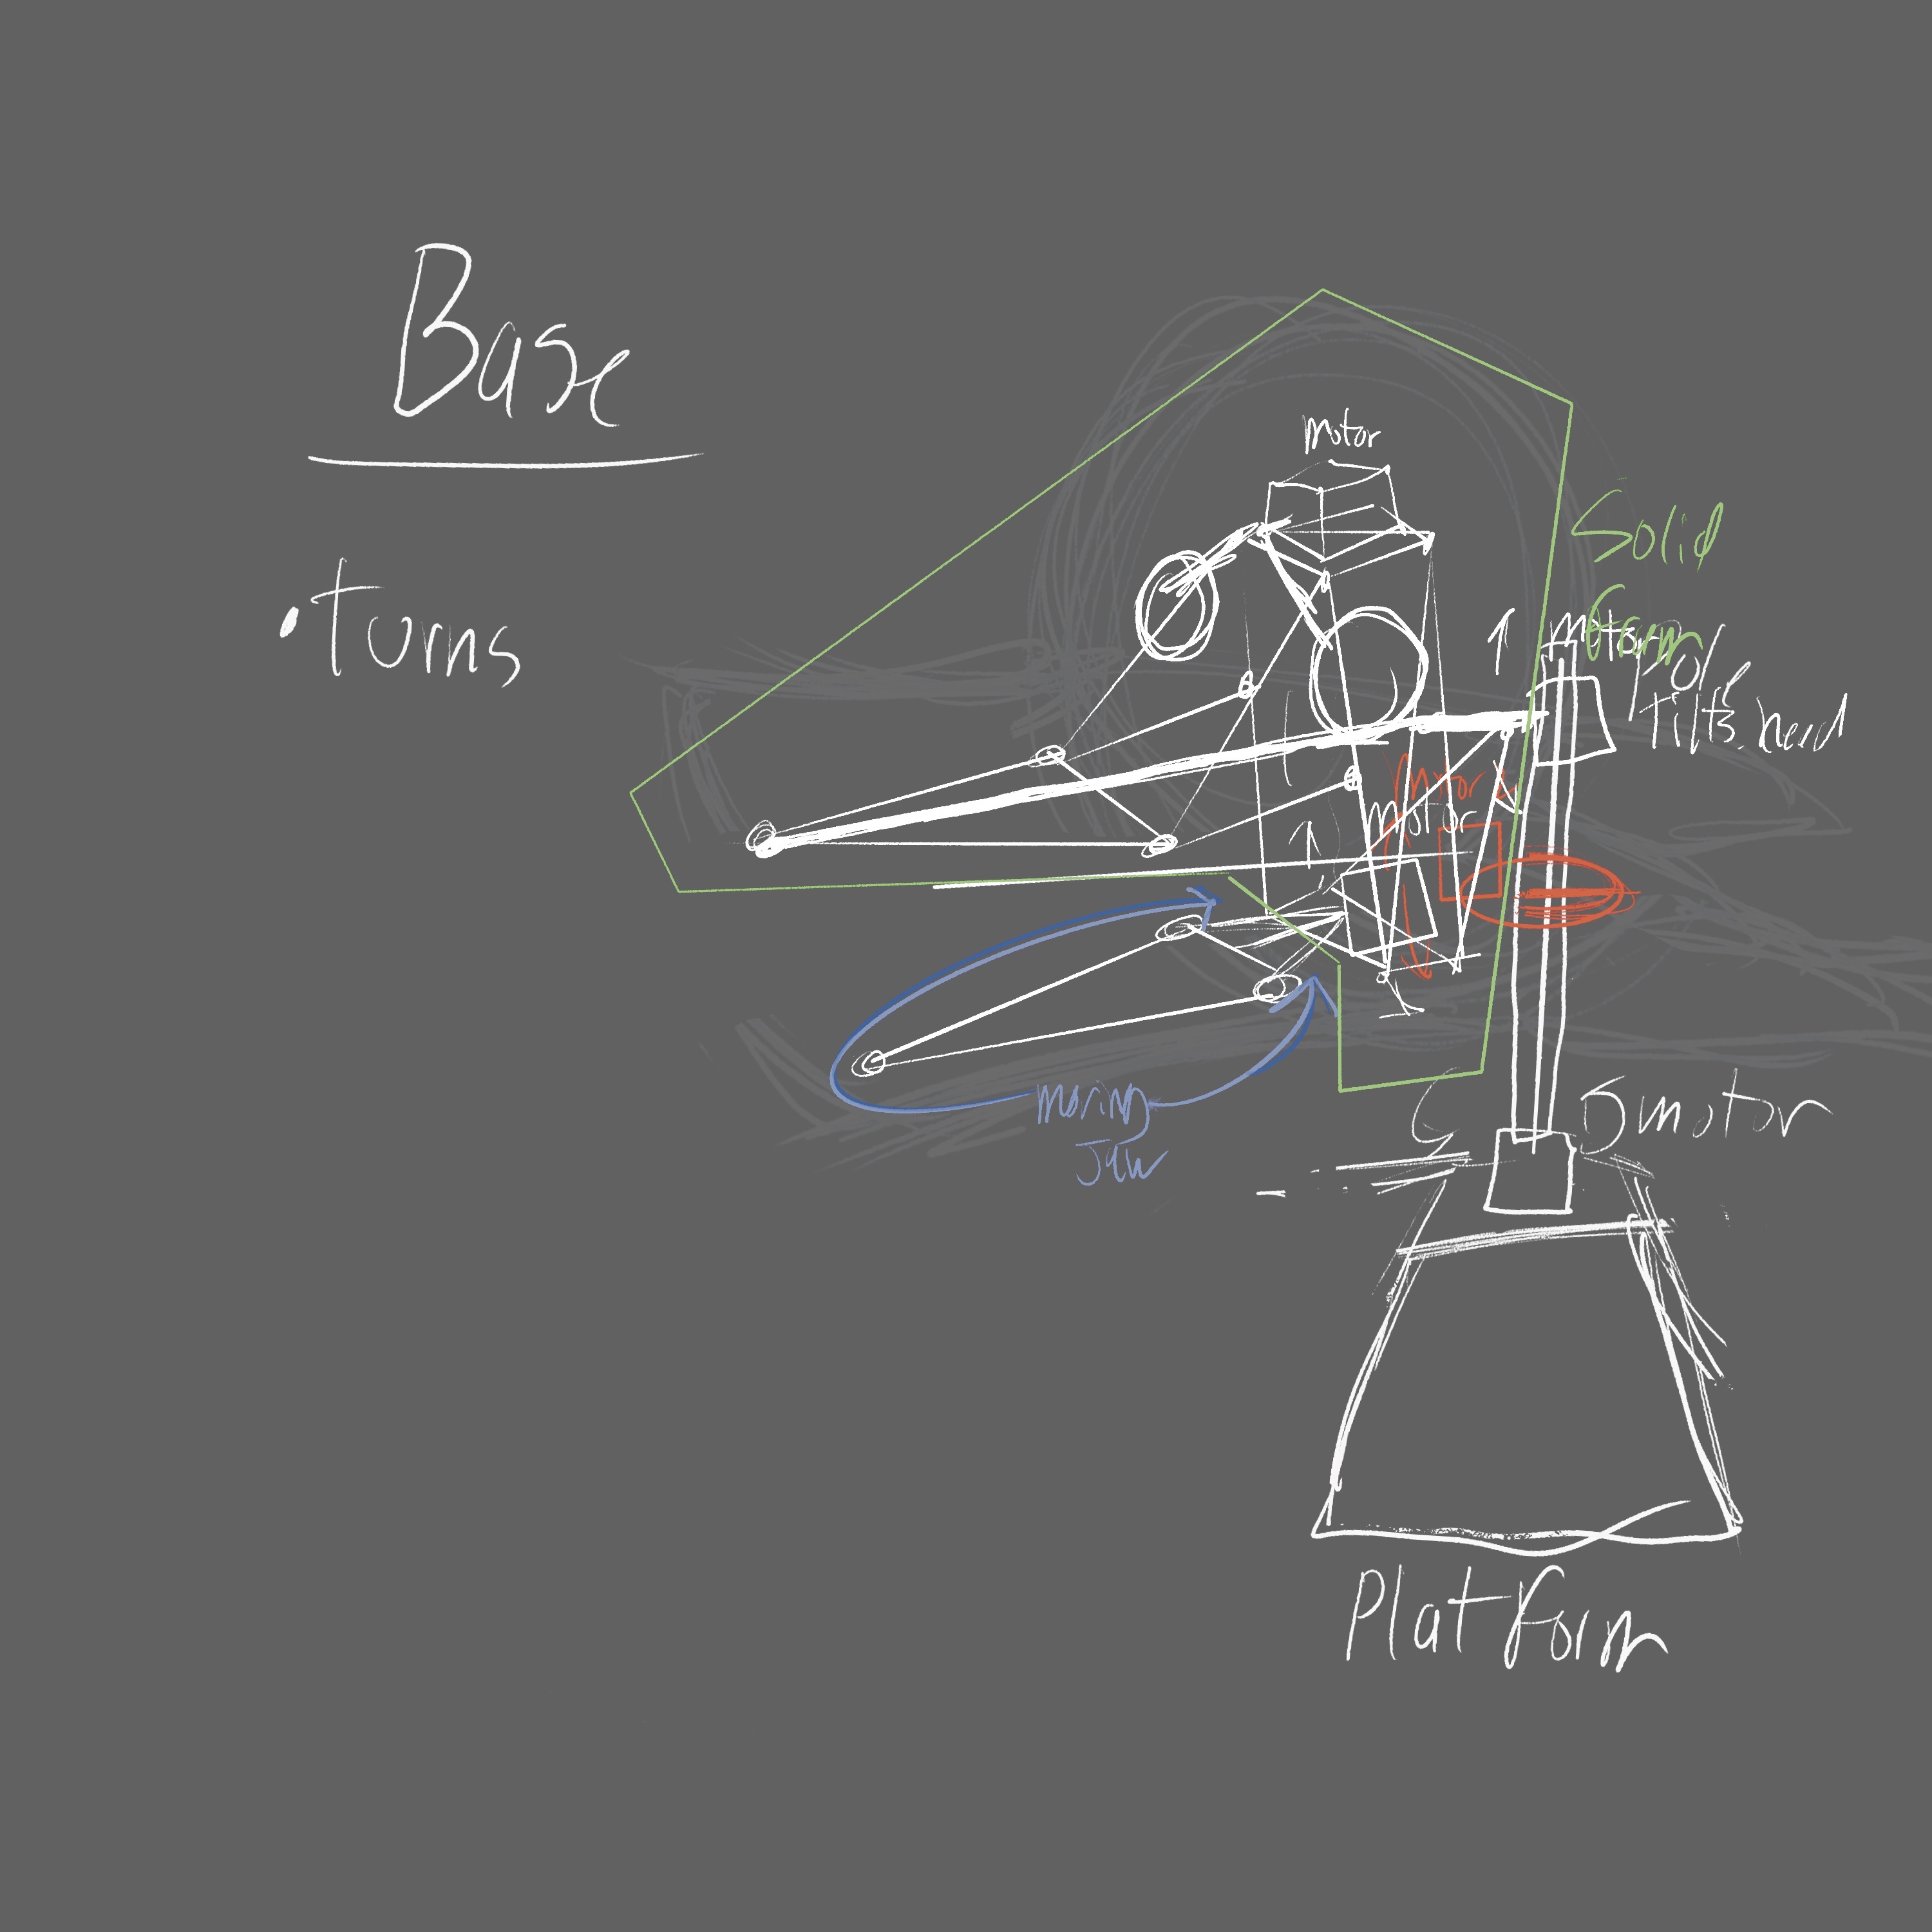 Base
• turns
motor
Solid
form
motor
pole
tilts head
motor
motor
moving
Jaw
motor
Platform